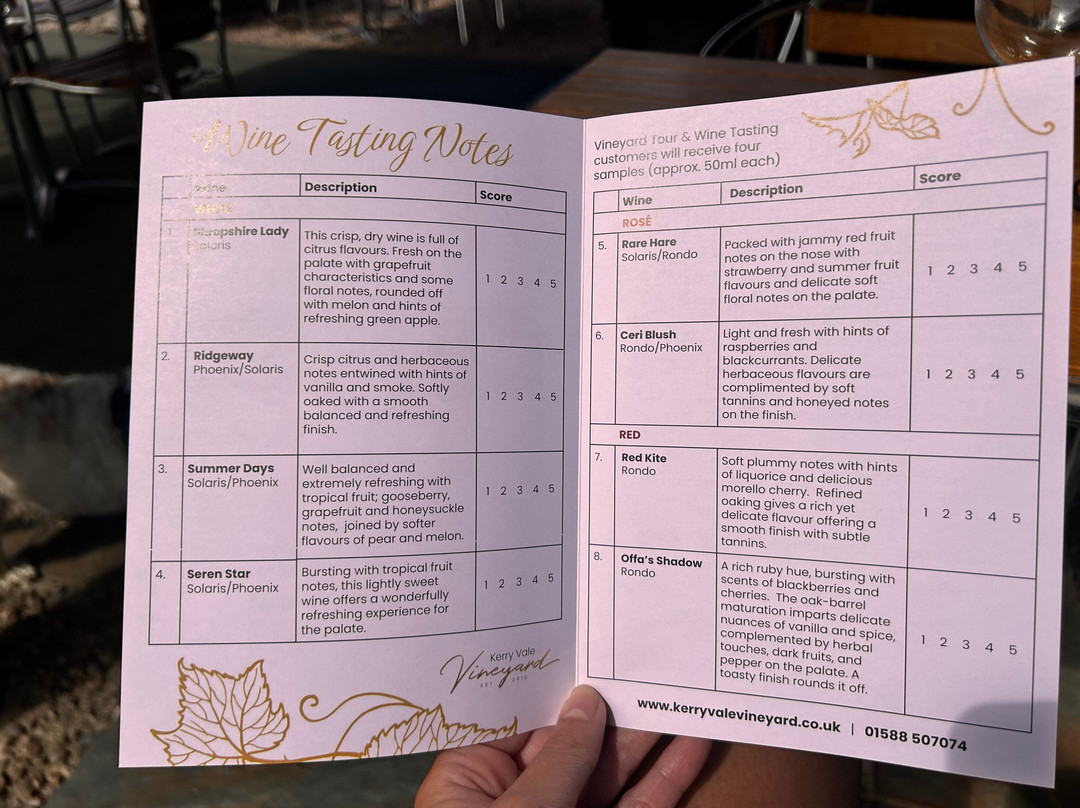 Wine Tasting Notes
Wine Description Score
WHITE
1. Shropshire Lady
Solaris
This crisp, dry wine is full of
citrus flavours. Fresh on the
palate with grapefruit
characteristics and some
floral notes, rounded off
with melon and hints of
refreshing green apple.
1 2 3 4 5
2. Ridgeway
Phoenix/Solaris
Crisp citrus and herbaceous
notes entwined with hints of
vanilla and smoke. Softly
oaked with a smooth
balanced and refreshing
finish.
1 2 3 4 5
3. Summer Days
Solaris/Phoenix
Well balanced and
extremely refreshing with
tropical fruit; gooseberry,
grapefruit and honeysuckle
notes, joined by softer
flavours of pear and melon.
1 2 3 4 5
4. Seren Star
Solaris/Phoenix
Bursting with tropical fruit
notes, this lightly sweet
wine offers a wonderfully
refreshing experience for
the palate.
1 2 3 4 5
Kerry Vale
Vineyard
EST. 2010
Vineyard Tour & Wine Tasting
customers will receive four
samples (approx. 50ml each)
Wine Description Score
ROSÉ
5. Rare Hare
Solaris/Rondo
Packed with jammy red fruit
notes on the nose with
strawberry and summer fruit
flavours and delicate soft
floral notes on the palate.
1 2 3 4 5
6. Ceri Blush
Rondo/Phoenix
Light and fresh with hints of
raspberries and
blackcurrants. Delicate
herbaceous flavours are
complimented by soft
tannins and honeyed notes
on the finish.
1 2 3 4 5
RED
7. Red Kite
Rondo
Soft plummy notes with hints
of liquorice and delicious
morello cherry. Refined
oaking gives a rich yet
delicate flavour offering a
smooth finish with subtle
tannins.
1 2 3 4 5
8. Offa's Shadow
Rondo
A rich ruby hue, bursting with
scents of blackberries and
cherries. The oak-barrel
maturation imparts delicate
nuances of vanilla and spice,
complemented by herbal
touches, dark fruits, and
pepper on the palate. A
toasty finish rounds it off.
1 2 3 4 5
www.kerryvalevineyard.co.uk | 01588 507074